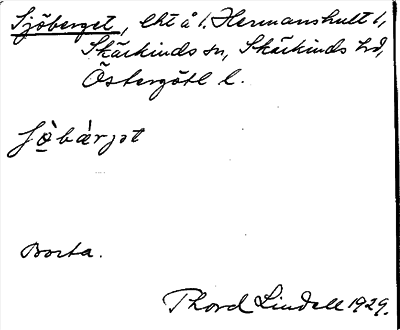 Sjöberget, lht å 1. Hermanshult 1,
Skärkinds sn, Skärkinds hd,
Östergötl l.
Borta.
Thord Lindell 1929.